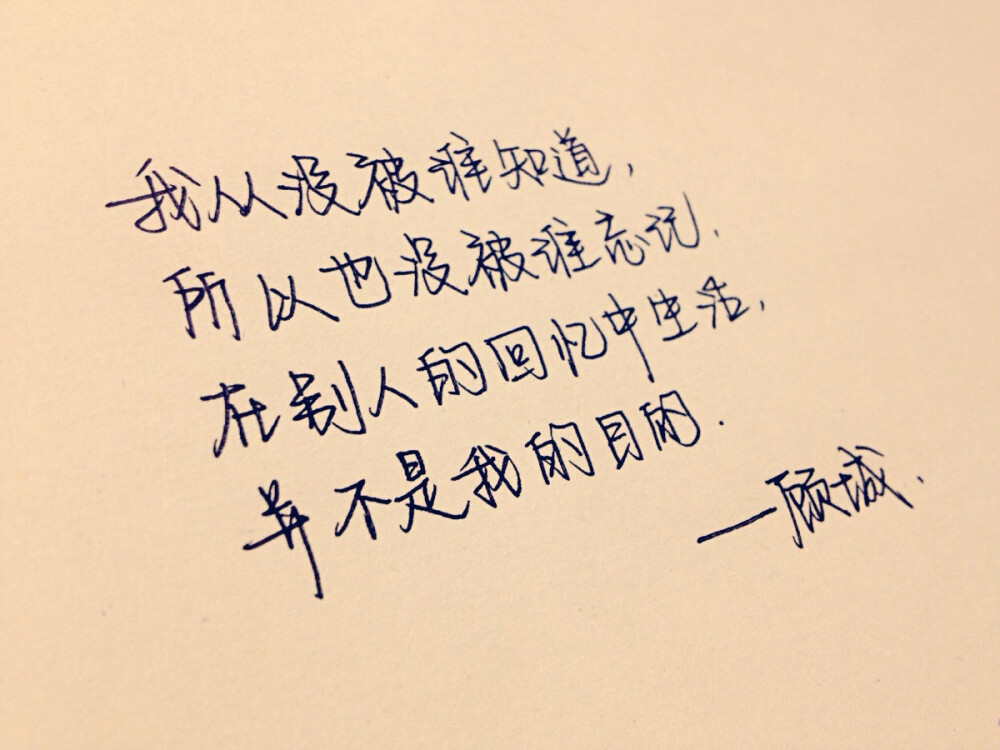 我从没被谁知道，
所以也没被谁忘记．
在别人的回忆中生活，
并不是我的目的．
—顾城．